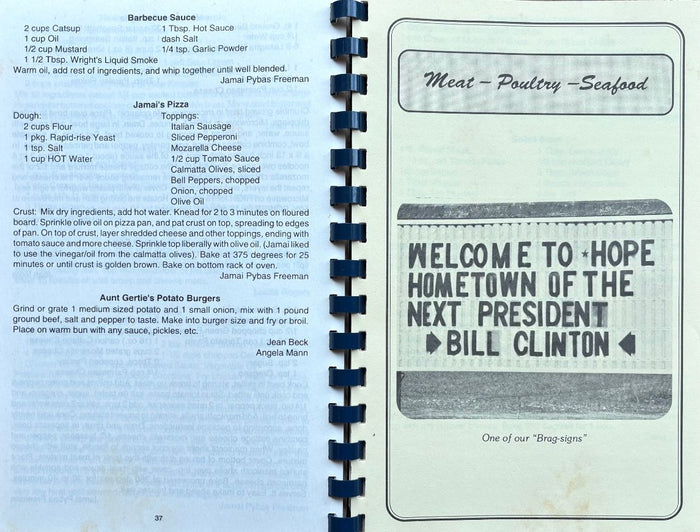 Barbecue Sauce
2 cups Catsup 1 Tbsp. Hot Sauce
1 cup Oil dash Salt
1/2 cup Mustard 1/4 tsp. Garlic Powder
1 1/2 Tbsp. Wright's Liquid Smoke
Warm oil, add rest of ingredients, and whip together until well blended.
Jamai Pybas Freeman
Jamai's Pizza
Dough: Toppings:
2 cups Flour Italian Sausage
1 pkg. Rapid-rise Yeast Sliced Pepperoni
1 tsp. Salt Mozarella Cheese
1 cup HOT Water 1/2 cup Tomato Sauce
Calmatta Olives, sliced
Bell Peppers, chopped
Onion, chopped
Olive Oil
Crust: Mix dry ingredients, add hot water. Knead for 2 to 3 minutes on floured
board. Sprinkle olive oil on pizza pan, and pat crust on top, spreading to edges
of pan. On top of crust, layer shredded cheese and other toppings, ending with
tomato sauce and more cheese. Sprinkle top liberally with olive oil. (Jamai liked
to use the vinegar/oil from the calmatta olives). Bake at 375 degrees for 25
minutes or until crust is golden brown. Bake on bottom rack of oven.
Jamai Pybas Freeman
Aunt Gertie's Potato Burgers
Grind or grate 1 medium sized potato and 1 small onion, mix with 1 pound
ground beef, salt and pepper to taste. Make into burger size and fry or broil.
Place on warm bun with any sauce, pickles, etc.
Jean Beck
Angela Mann
37
Meat - Poultry - Seafood
WELCOME TO *HOPE
HOMETOWN OF THE
NEXT PRESIDENT
BILL CLINTON
One of our "Brag-signs"